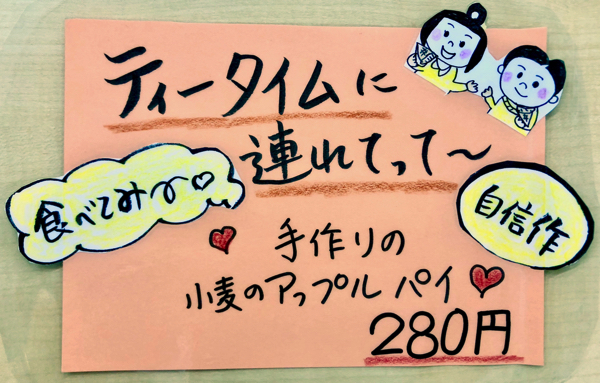 ティータイムに
連れてって〜
食べてみ〜♡
自信作
手作りの
小麦のアップルパイ
280円